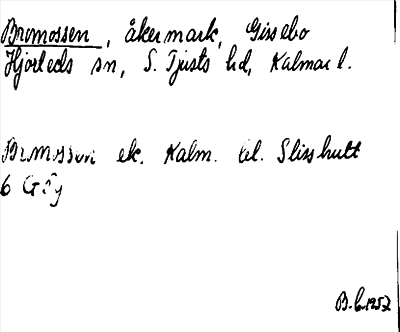 Bromossen, åkermark, Gissebo
Hjorteds sn, S. Tjusts hd, Kalmar l.
Bromossen ek. Kalm. bl. Slisshult
6 G
B. C. 1952